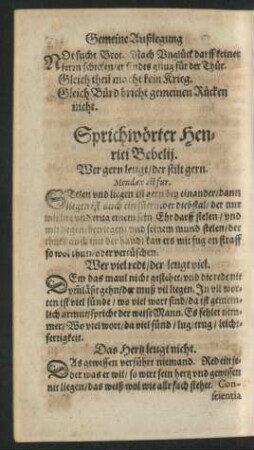 Gemeine Außlegung
NOt sucht Brot. Nach Vnglück darff keiner
ferrn schicken/er findts gnug für der Thür.
Gleich theil macht kein Krieg.
Gleich Bürd bricht gemeinen Rücken
nicht.
Sprichwörter Hen-
rici Bebelij.
Wer gern leugt/der stilt gern.
Mendax est fur.
STelen vnd liegen ist gern bey einander/dann
liegen ist auch ein diebstal/ der nur
mit lug vnd trug einem sein Ehr darff stelen/ vnd
mit liegen/ betriegen/ vnd seinem mund stelen/ der
thuts auch mit der hand: kan ers mit fug on straff
so wol thun/oder vertüschen.
Wer viel redt/der leugt viel.
DEm das maul nicht gestehet/vnd die rede nit
gehn/der muß vil liegen. In vil wor-
ten ist viel sünde/ wo viel wort sind/da ist gemein-
lich armut/spricht der weise Mann. Es fehlet nim-
mer/ Wo viel wort/da viel sünd/ lug/trug/ leicht-
fertigkeit.
Das Hertz leugt nicht.
DAs gewissen verführt niemand. Red ein je-
der was er wil/ so wirt sein hertz vnd gewissen
nit liegen/das weiß wol wie alle sach stehet. Con-
scientia